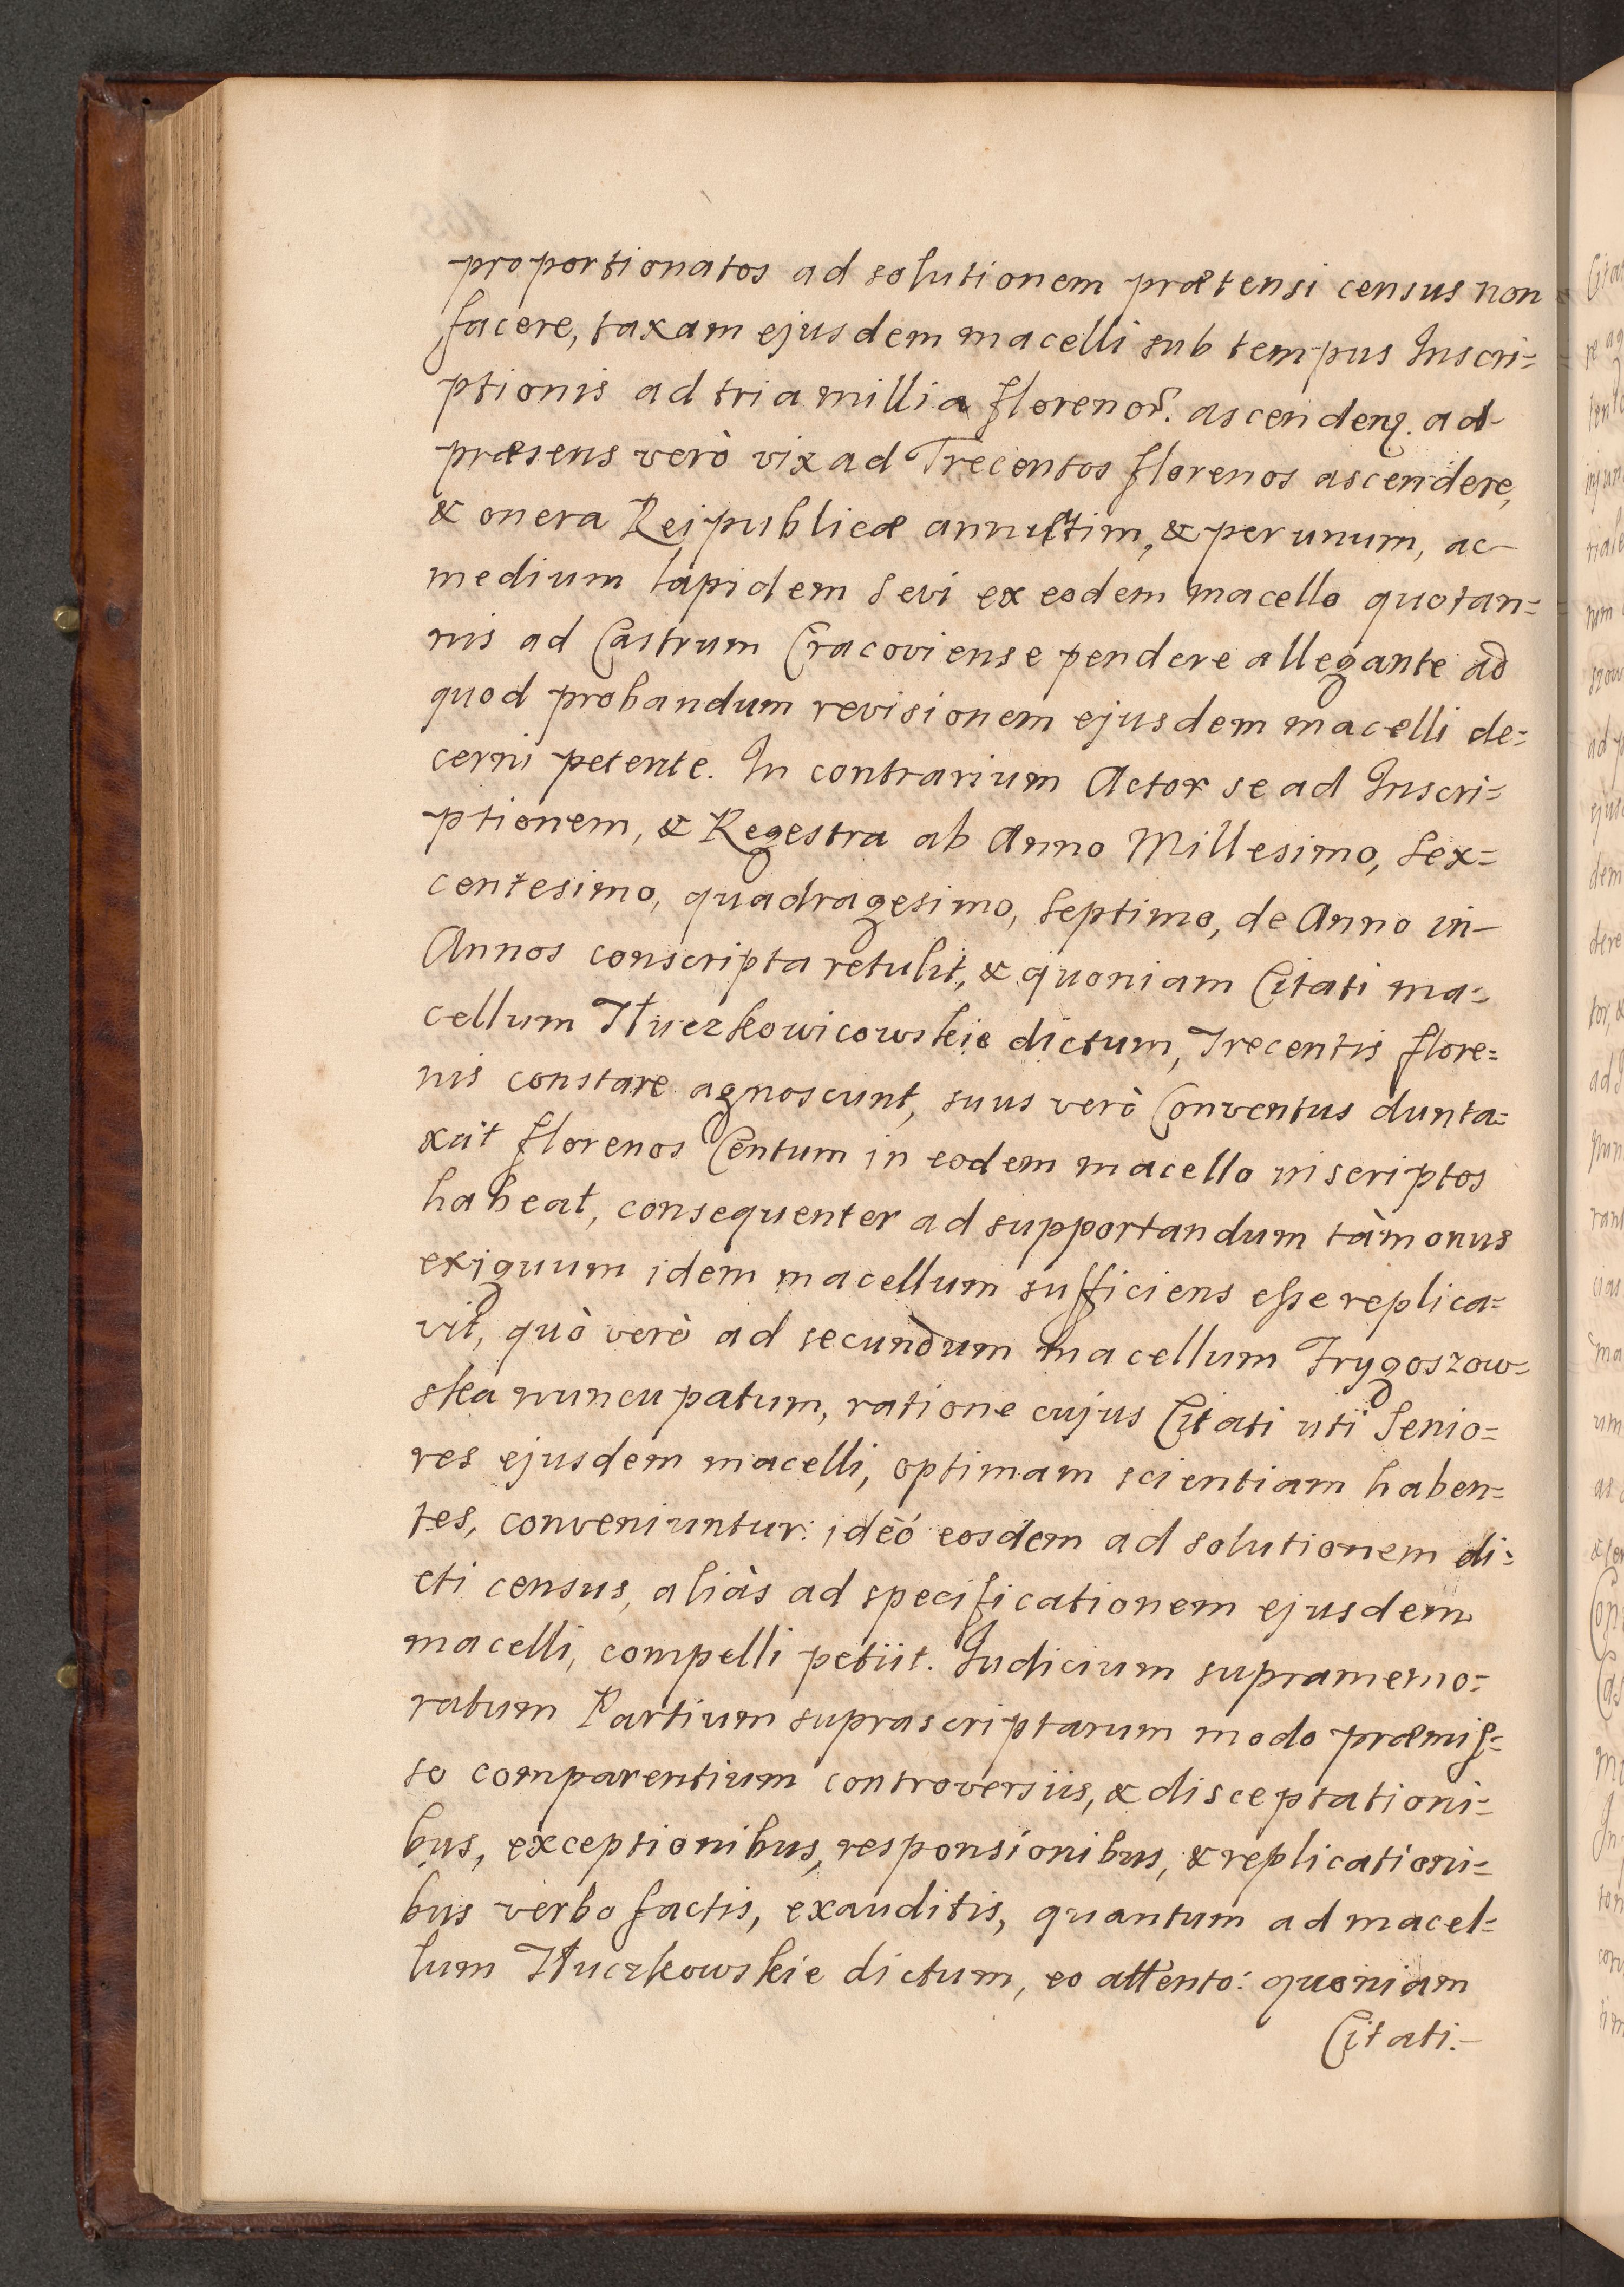 proportionatos ad solutionem prætensi census non
facere, taxam ejusdem macelli sub tempus Inscri=
ptionis ad tria millia florenor. ascendeng. ad
præsens verò vix ad Trecentos florenos ascendere,
& onera Reipublicæ annuatim, & per unum, ac
medium lapidem sevi ex eodem macello quotan=
nis ad Castrum Cracoviense pendere allegante ad
quod probandum revisionem ejusdem macelli de=
cerni petente. In contrarium Actor se ad Inscri=
ptionem, & Regestra ab Anno Millesimo, Sex=
centesimo, quadragesimo, Septimo, de Anno in
Annos conscripta retulit, & quoniam Citati ma=
cellum Huczkowicowskie dictum, Trecentis flore=
nis constare agnoscunt, suus verò Conventus dunta=
xat florenos Centum in eodem macello inscriptos
habeat, consequenter ad supportandum tàm onus
exiguum idem macellum sufficiens esse replica=
vit, quò verò ad secundum macellum Trygoszow=
ska nuncupatum, ratione cujus Citati uti Senio=
res ejusdem macelli, optimam scientiam haben=
tes, conveniuntur: ideó eosdem ad solutionem di=
cti census, aliàs ad specificationem ejusdem
macelli, compelli petiit. Iudicium supramemo=
ratum Partium suprascriptarum modo præmis=
so comparentium controversiis, & disceptationi=
bus, exceptionibus, responsionibus, & replicationi=
bus verbo factis, exauditis, quantum ad macel=
lum Huczkowskie dictum, eo attento: quoniam
Citati.